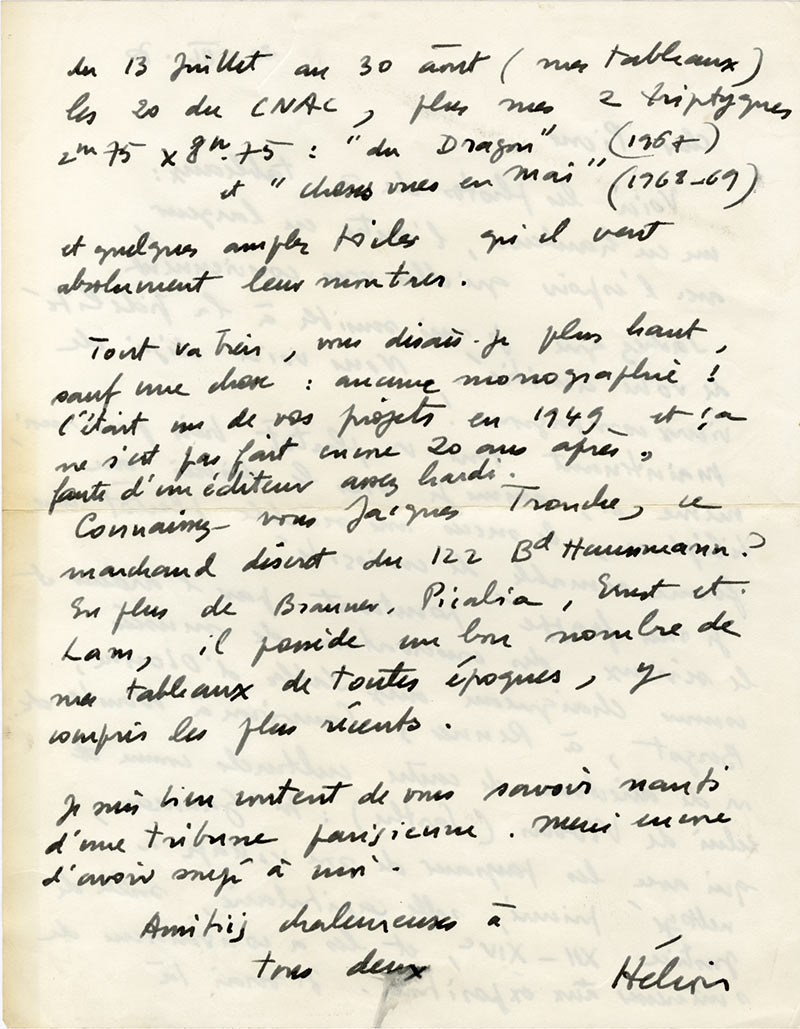 du 13 Juillet au 30 août ( mes tableaux )
les 20 du CNAC, plus mes 2 triptyques
2m75 x 8m.75 : "du Dragon" (1967)
et "choses vues en Mai" (1968-69)
et quelques amples toiles qu'il veut
absolument leur montrer.
Tout va bien, vous disais-je plus haut,
sauf une chose : aucune monographie !
C'était un de vos projets en 1949 et ça
ne s'est pas fait encore 20 ans après,
faute d'un éditeur assez hardi.
Connaissez-vous Jacques Tronche, ce
marchand discret du 122 Bd Haussmann ?
En plus de Brauner, Picabia, Ernst et
Lam, il possède un bon nombre de
mes tableaux de toutes époques, y
compris les plus récents.
Je suis bien content de vous savoir nanti
d'une tribune parisienne. Merci encore
d'avoir songé à moi.
Amitiés chaleureuses à
tous deux
Hélion